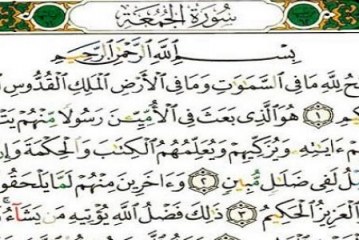 سُورَةُ الْجُمُعَةِ
بِسْمِ اللَّهِ الرَّحْمَٰنِ الرَّحِيمِ
حُ لِلَّهِ مَا فِي السَّمَٰوَٰتِ وَمَا فِي الْأَرْضِ الْمَلِكِ الْقُدُّوسِ
يمِ ١ هُوَ الَّذِي بَعَثَ فِي الْأُمِّيِّـۧنَ رَسُولًا مِّنْهُمْ يَتْ
مْ ءَايَٰتِهِ وَيُزَكِّيهِمْ وَيُعَلِّمُهُمُ الْكِتَٰبَ وَالْحِكْمَةَ وَإِن
لُ لَفِي ضَلَٰلٍ مُّبِينٍ ٢ وَءَاخَرِينَ مِنْهُمْ لَمَّا يَلْحَقُوا
الْعَزِيزُ الْحَكِيمُ ٣ ذَٰلِكَ فَضْلُ اللَّهِ يُؤْتِيهِ مَن يَشَآءُ ۚ